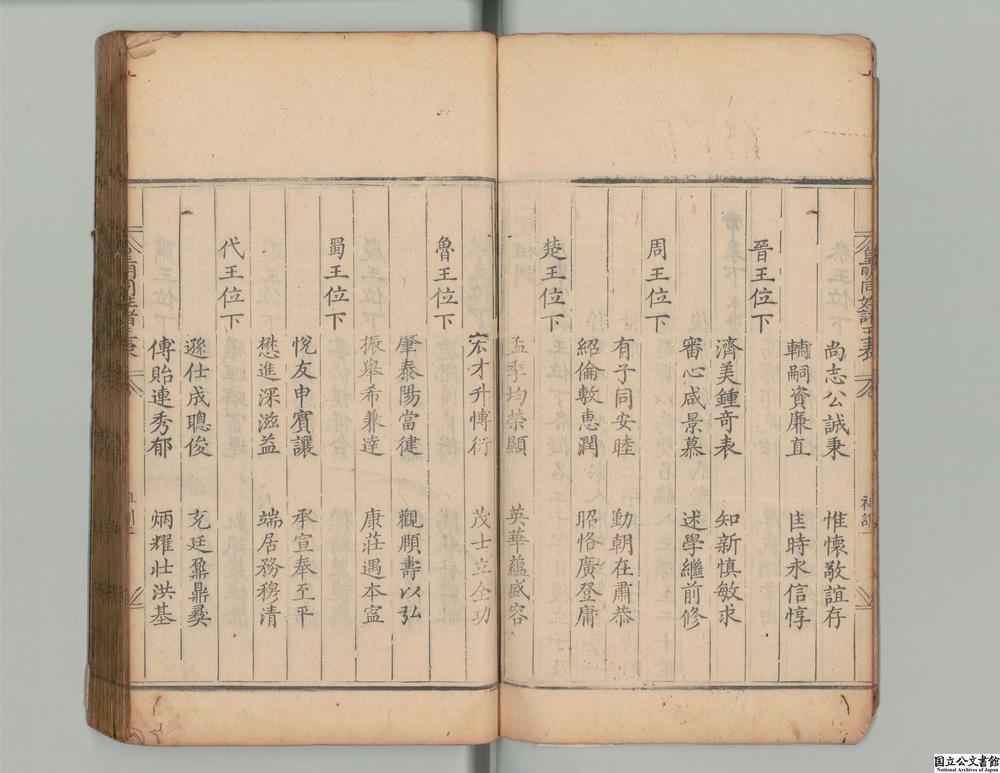 皇明同姓諸王表
尚志公誠秉　惟懷敬誼存
輔嗣資廉直　匡時永信惇
晉王位下
濟美鍾奇表　知新慎敏求
審心咸景慕　述學繼前修
周王位下
有子同安睦　勤朝在肅恭
紹倫敷惠潤　昭恪廣登庸
楚王位下
孟季均榮顯　英華蘊盛容
宏才升博衍　茂士立全功
魯王位下
肇泰陽當健　觀頤壽以弘
振舉希兼達　康莊遇本寍
蜀王位下
悅友申賓讓　承宣奉至平
懋進深滋益　端居務穆清
代王位下
遜仕成聰俊　充廷鼐鼎彝
傅貽連秀郁　炳耀壯洪基
国立公文書館
National Archives of Japan